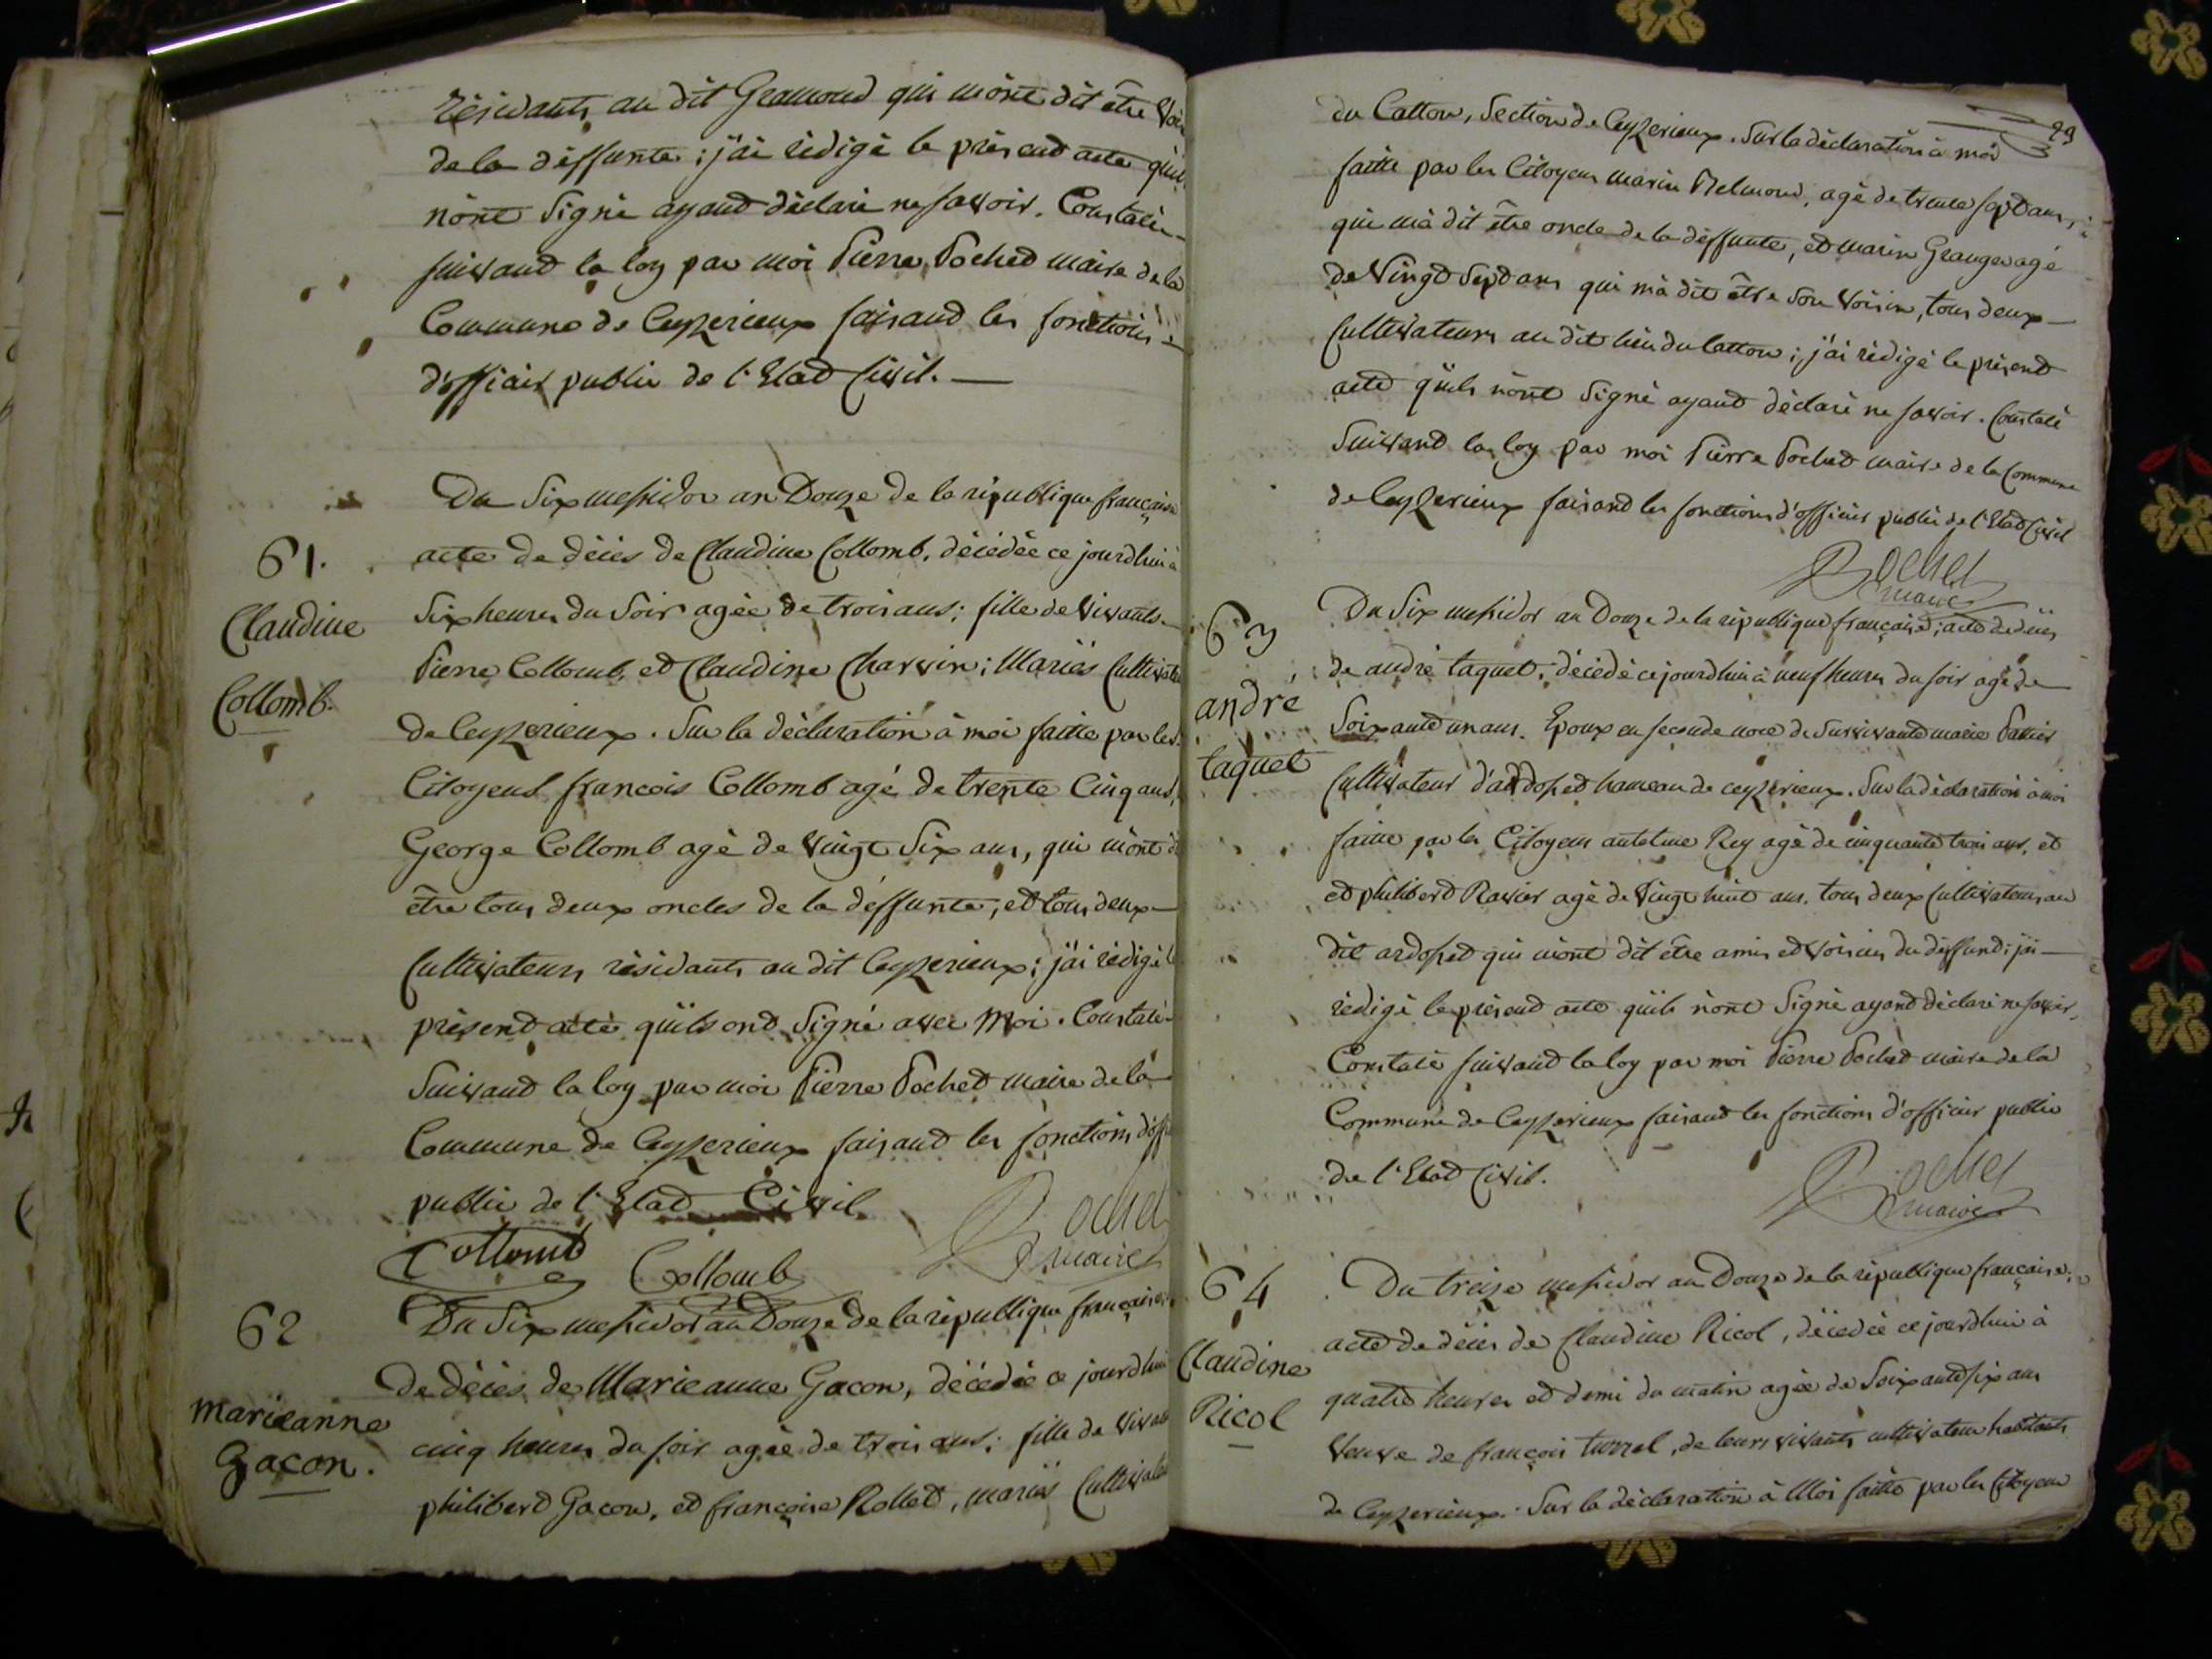 résidants au dit Gramond qui m'ont dit être Voi
de la déffunte; j'ai rédigé le présend acte qu'ils
n'ont Signé ayand déclaré ne savoir. Constaté
suivand la loy par moi Pierre Pochet maire de la
Commune de Ceyzerieux faisand les fonctions
d'officier public de l'Etad Civil.
Du Six messidor an Douze de la république française
61.
acte de décès de Claudine Collomb, décédée ce jourdhui à
Claudine
Six heures du Soir agée de trois ans; fille de Vivants
Pierre Collomb, et Claudine Charvin; Mariés Cultivate
Collomb.
de Ceyzerieux. Sur la déclaration à moi faitte par les
Citoyens françois Collomb agé de trente Cinq ans,
George Collomb agé de Vingt Six ans, qui m'ont di
être tous deux oncles de la déffunte, et tous deux
Cultivateurs résidants au dit Ceyzerieux; j'ai rédigé le
présend acte qu'ils ond Signé avec Moi. Constaté
Suivand la loy par moi Pierre Pochet maire de la
Commune de Ceyzerieux faisand les fonctions d'offi
public de l'Etad Civil
Collomb Collomb Pochet
maire
62
Du Six messidor an Douze de la république française
De décès de Marieanne Gacon, décédée ce jourdhui
Marieanne
cinq heures du soir agée de trois ans; fille de Vivants
Gacon.
philiberd Gacon, et françoise Rollet, mariés Cultivate
29
du Catton, Section de Ceyzerieux. Sur la déclaration à moi
faitte par les Citoyens marin agé de trente sept ans,
qui m'a dit être oncle de la déffunte, et marin Granger agé
de Vingt Sept ans qui m'a dit être Son Voisin, tous deux
Cultivateurs au dit lieu du Catton; j'ai rédigé le présend
acte qu'ils n'ont Signé ayand déclaré ne savoir. Constaté
Suivand la loy par moi Pierre Pochet maire de la Commune
de Ceyzerieux faisand les fonctions d'officier public de l'Etad Civil
Pochet
maire
63
Du Six messidor an Douze de la république française; acte de décès
de andré taquet; décédé ce jourdhui à neuf heures du soir agé de
andré
Soixante un ans. Epoux en seconde noce de Survivante marie
taquet
Cultivateur d'ardoset hameau de ceyzerieux. Sur la déclaration à moi
faitte par les Citoyens antelme Rey agé de cinquante trois ans, et
et philiberd Ravier agé de Vingt huit ans. tous deux Cultivateurs au
dit ardoset qui m'ont dit être amis et Voisins du déffund; j'ai
rédigé le présend acte qu'ils n'ont Signé ayand déclaré ne savoir,
Constaté suivand la loy par moi Pierre Pochet maire de la
Commune de Ceyzerieux faisand les fonctions d'officier public
de l'Etad Civil.
Pochet
maire
64
Du treize messidor an Douze de la république française;
acte de décès de Claudine Ricol, décedée ce jourdhui à
Claudine
quatre heures et demi du matin agée de Soixante six ans
Ricol
Veuve de françois turrel, de leurs vivants cultivateurs habitants
de Ceyzerieux. Sur la déclaration à Moi faitte par les Citoyens